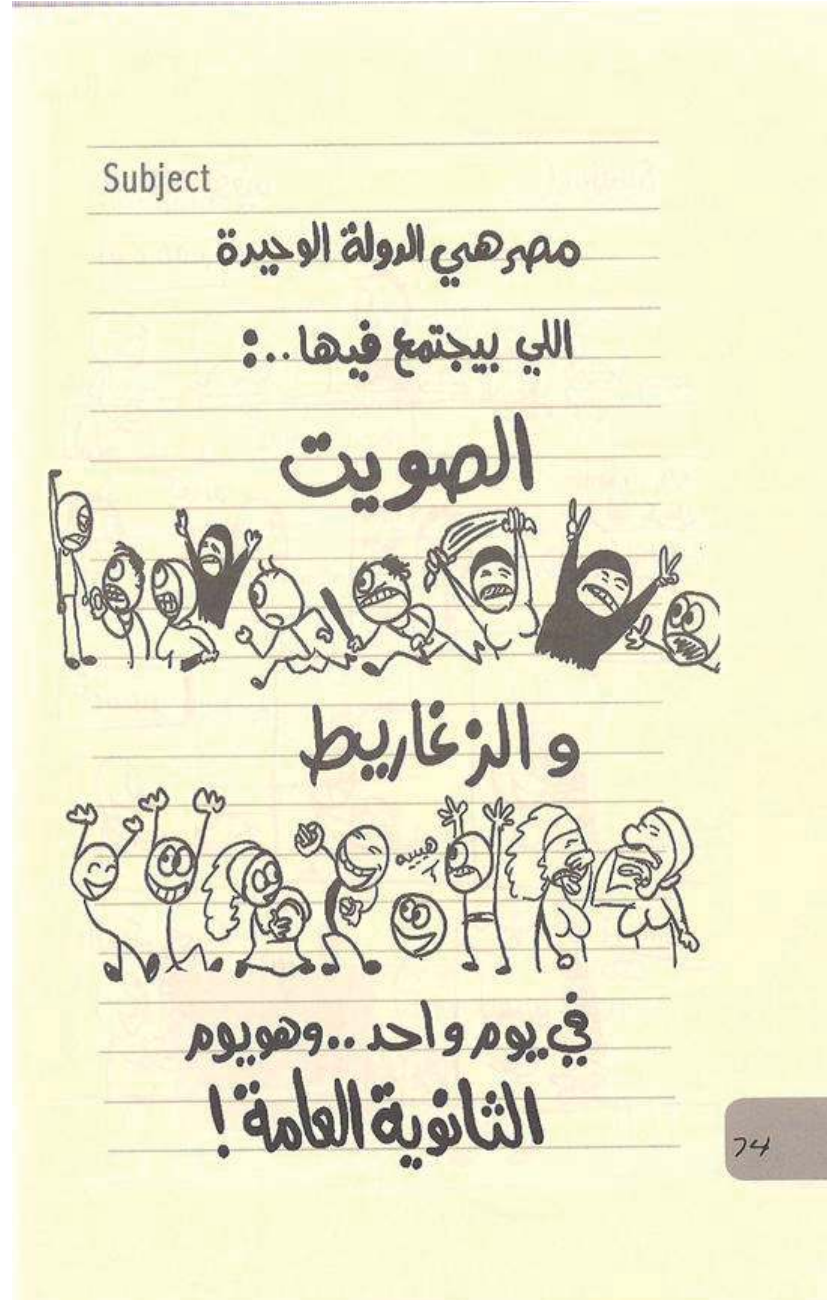 Subject
مصر هي الدولة الوحيدة
اللي بيجتمع فيها..:
الصويت
والزغاريط
هييييه
في يوم واحد..وهو يوم
الثانوية العامة!
74